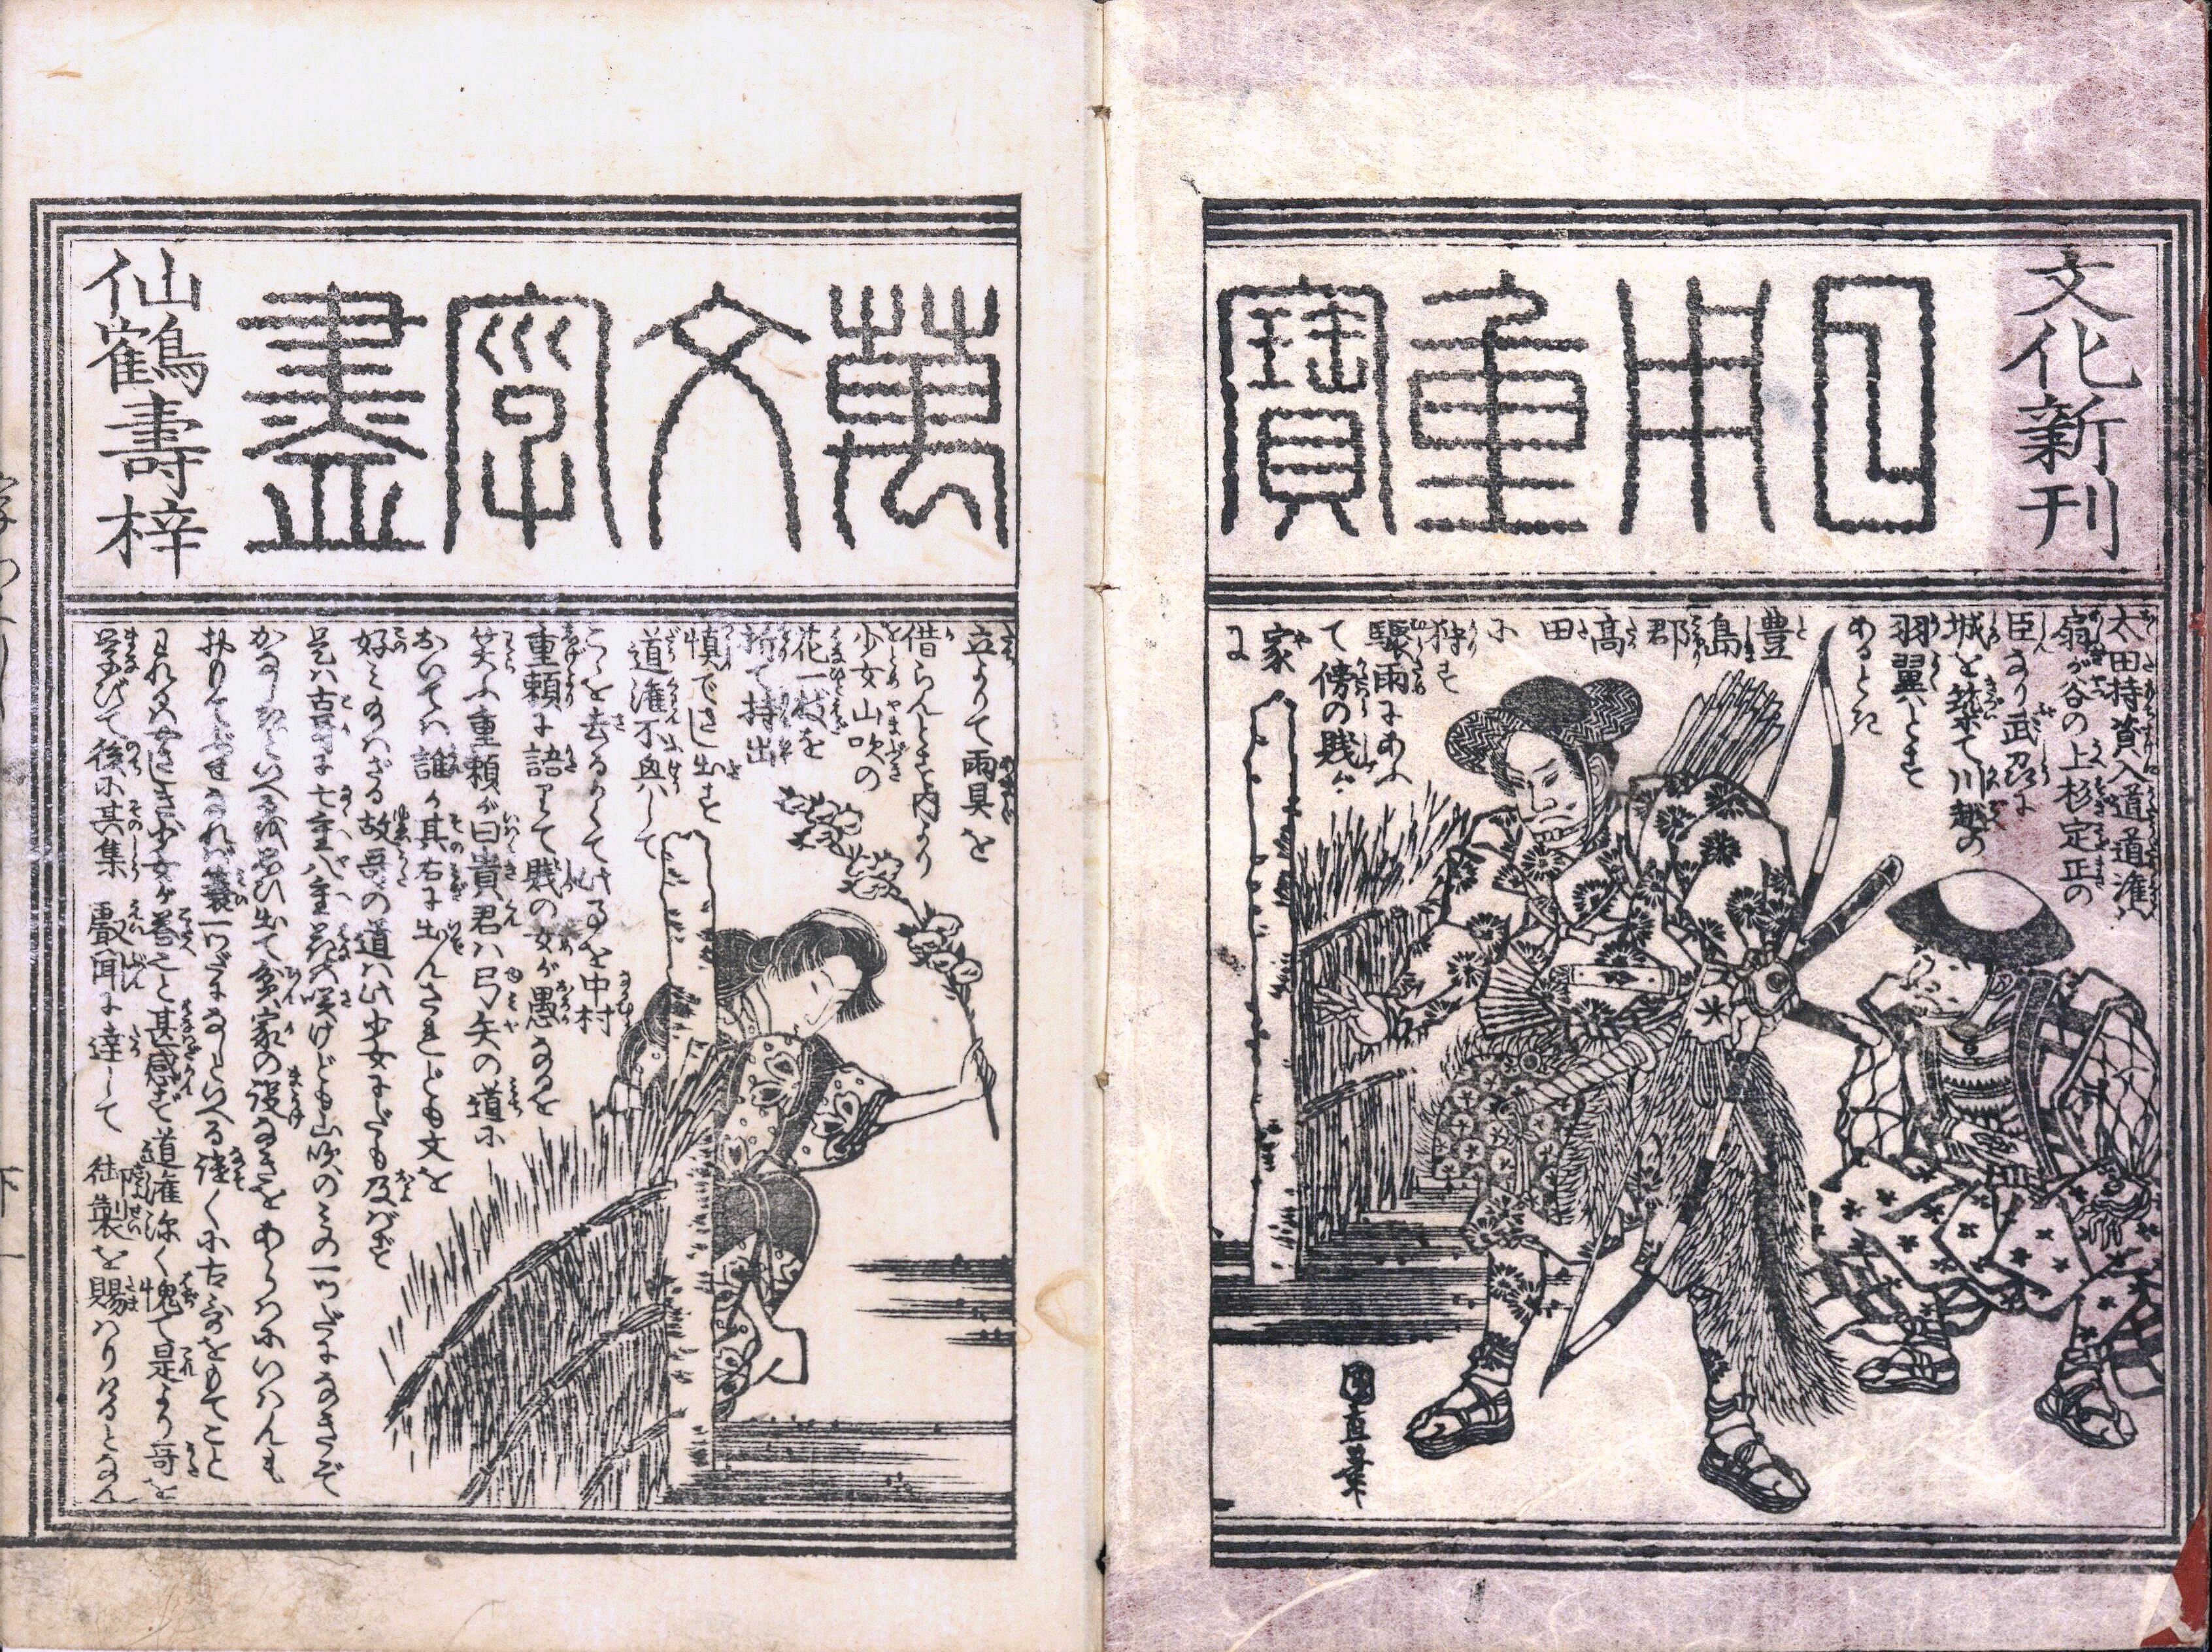 文化新刊
日用重寶
太田持資入道道潅ハ
扇が谷の上杉定正の
臣なり武刕に
城を築て川越の
羽翼とす
あるとき
豊
島
郡
高
田
に
狩す
驟雨にあふ
て傍の賤が
家
に
國直筆
萬文字盡
仙鶴壽梓
立よりて雨具を
借らんとき内より
少女山吹の
花一枝を
折て持出
慎でさし出す
道潅不興して
こゝを去るかくて此事を中村
重頼に語りて賤の女が愚なるを
笑ふ重頼が曰貴君ハ弓矢の道に
おいてハ誰か其右に出んされども文を
好ミ給ハざる故哥の道ハ此少女にだも及バず
是ハ古哥に七重八重花ハ咲けども山吹のミの一ツだになきぞ
かなしきといへる哥を思ひ出て貧家の設なきをあらハにいハんも
みのひとつだになしといへる謎く古哥をもてこと
少女が答こと甚感ず道潅深く愧て是より哥を
学びて後に其集　叡聞に達して　御製を賜ハりけるとなん